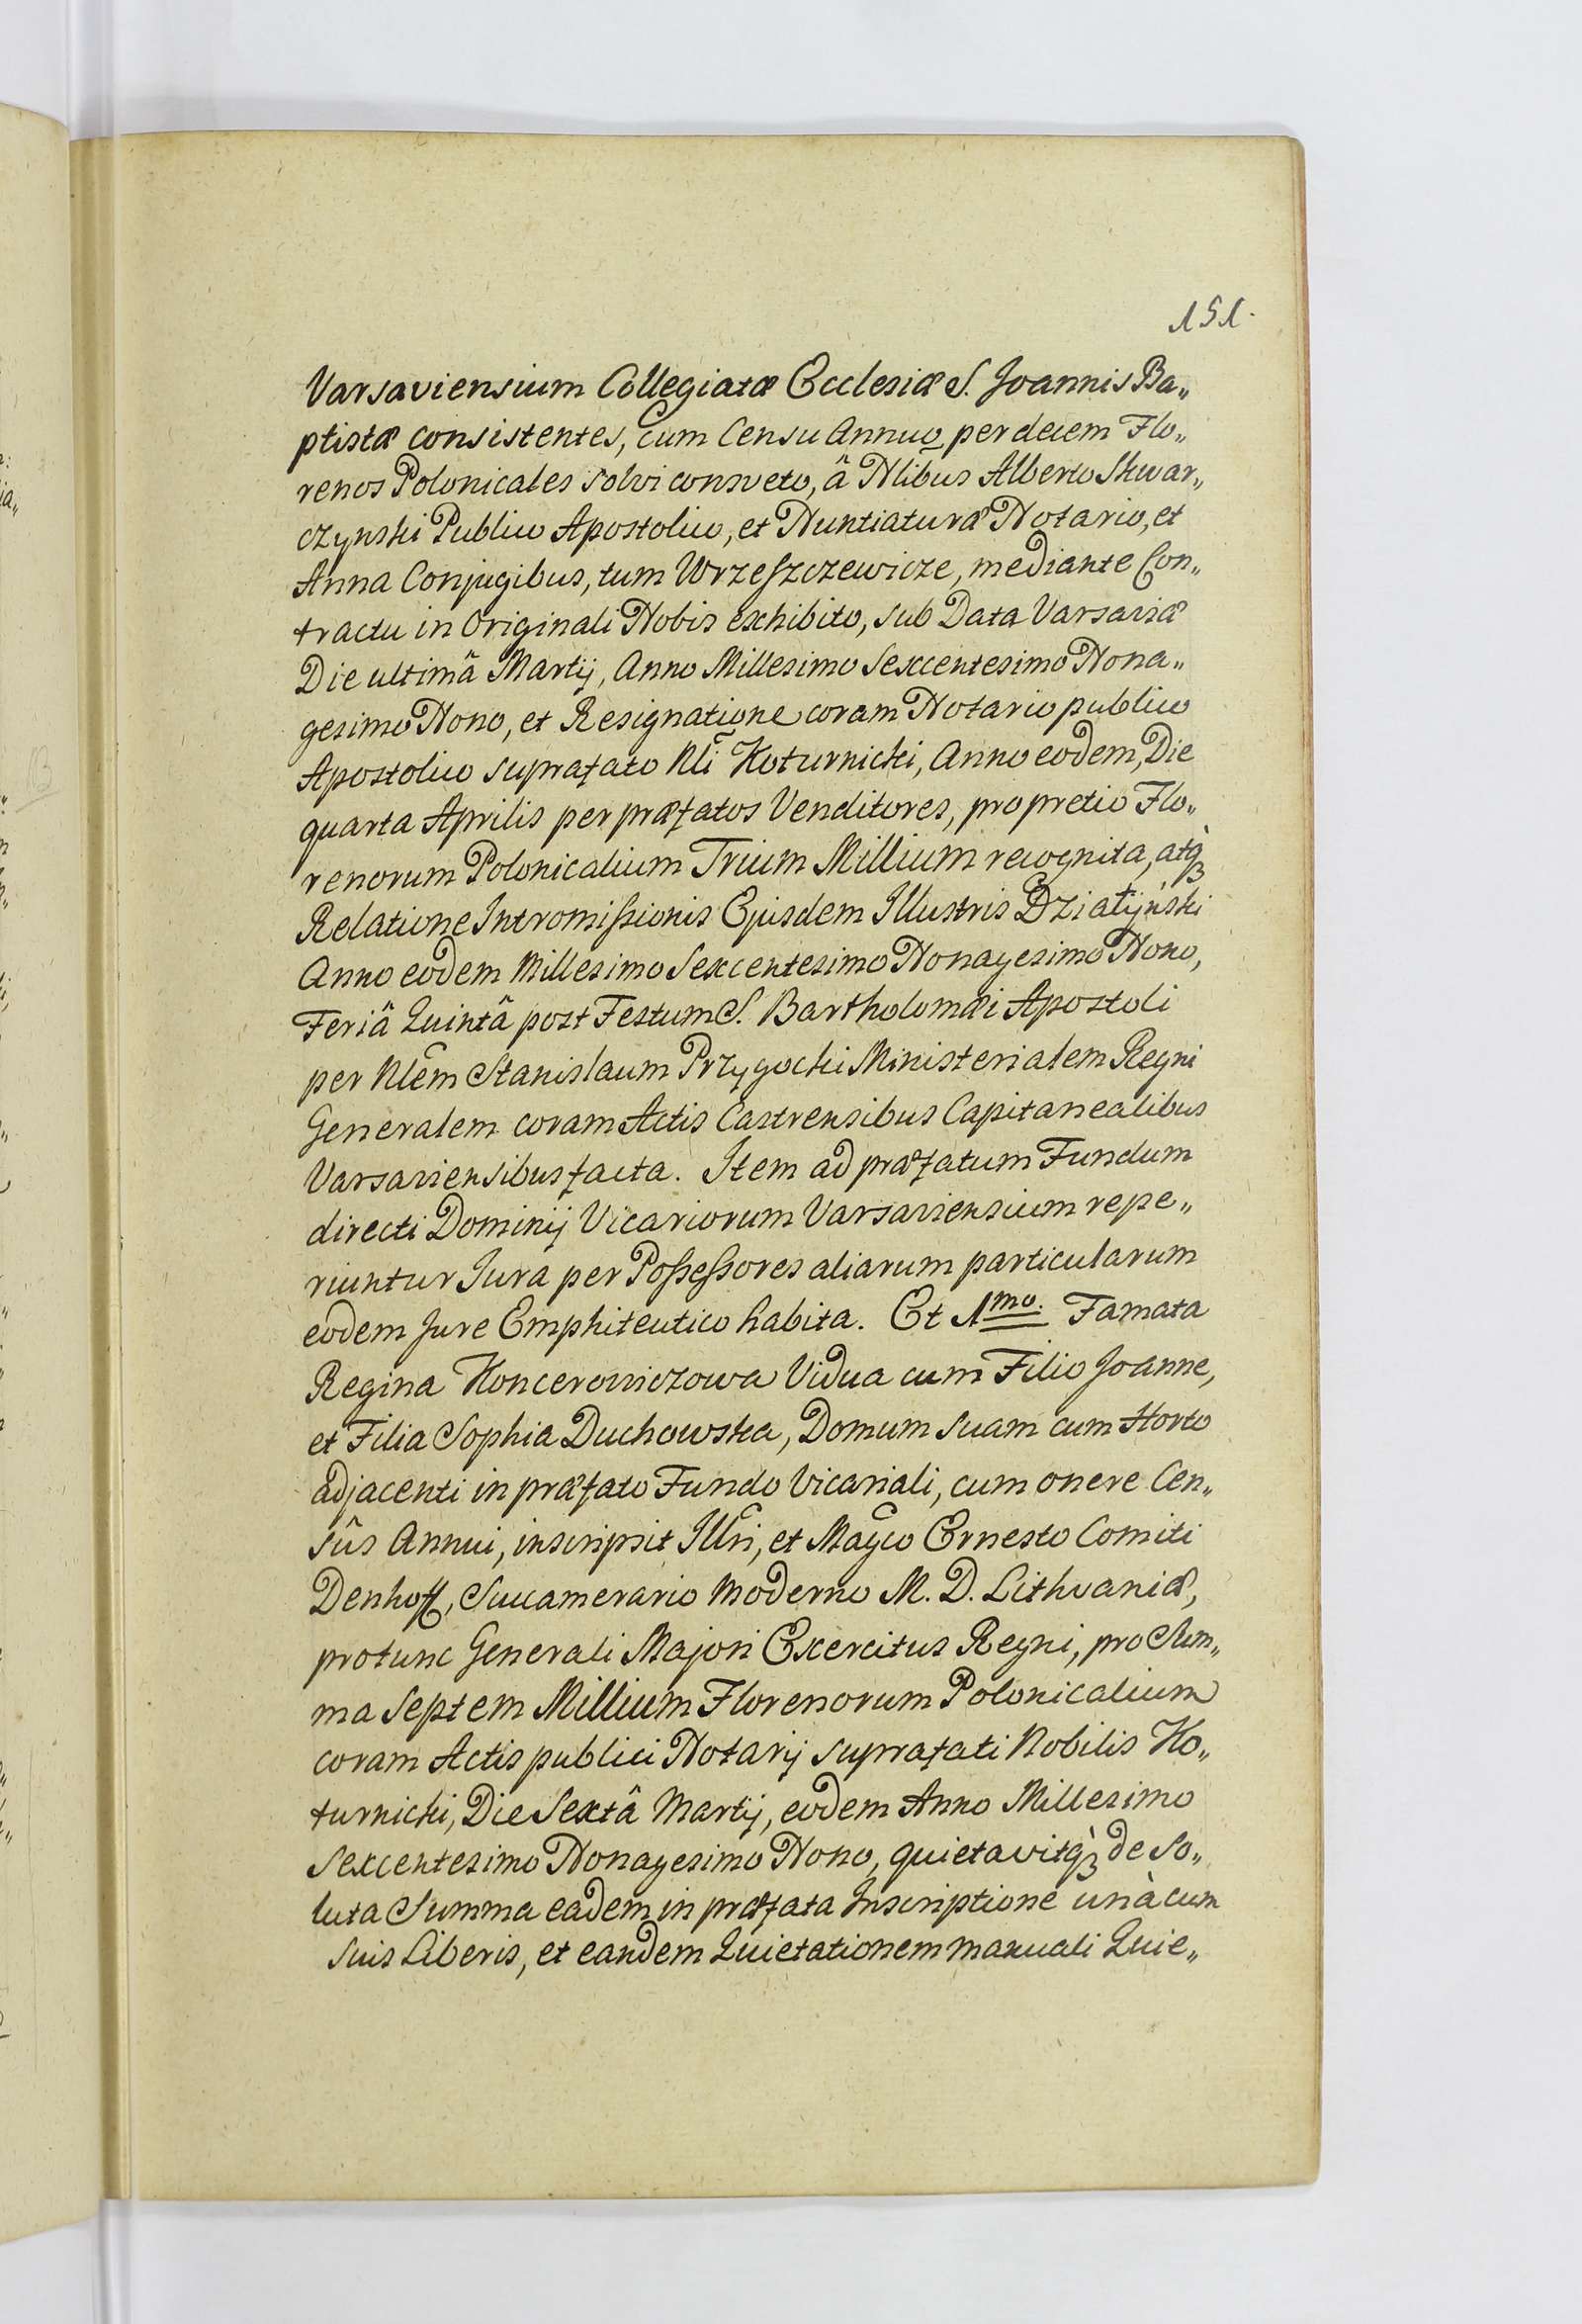 151.
Varsaviensium Collegiatæ Ecclesiæ S. Joannis Ba„
ptistæ consistentes, cum Censu Annuo per decem Flo„
renos Polonicales solvi consveto, â Nlibus Alberto Skwar„
czynski Publico Apostolico, et Nuntiaturæ Notario, et
Anna Conjugibus, tum Wrzeszczewicze, mediante Con„
tractu in Originali Nobis exhibito, sub Data Varsaviæ
Die ultimâ Martij, Anno Millesimo Sexcentesimo Nona„
gesimo Nono, et Resignatione coram Notario publico
Apostolico suprafato Nli Koturnicki, Anno eodem, Die
quarta Aprilis per præfatos Venditores, pro pretio Flo„
renorum Polonicalium Trium Millium recognita, atq̀ꝫ
Relatione Intromissionis Ejusdem Illustris Działyński
Anno eodem Millesimo Sexcentesimo Nonagesimo Nono,
Feriâ Quintâ post Festum S. Bartholomæi Apostoli
per Nlem Stanislaum Przygocki Ministerialem Regni
Generalem coram Actis Castrensibus Capitanealibus
Varsaviensibus facta. Item ad præfatum Fundum
directi Dominij Vicariorum Varsaviensium repe„
riuntur Jura per Possessores aliarum particularum
eodem Jure Emphiteutico habita. Et 1mo. Famata
Regina Koncerowiczowa Vidua cum Filio Joanne,
et Filia Sophia Duchowska, Domum suam cum Horto
adjacenti in præfato Fundo Vicariali, cum onere Cen„
sûs Annui, inscripsit Illri, et Magco Ernesto Comiti
Denhoff, Succamerario moderno M. D. Lithvaniæ,
protunc Generali Majori Exercitus Regni, pro Sum„
ma septem Millium Florenorum Polonicalium
coram Actis publici Notarij suprafati Nobilis Ko„
turnicki, Die Sextâ Martij, eodem Anno Millesimo
Sexcentesimo Nonagesimo Nono, quietavitq̀ꝫ de so„
luta Summa eadem in præfata Inscriptione unà cum
suis Liberis, et eandem Quietationem manuali Quie„